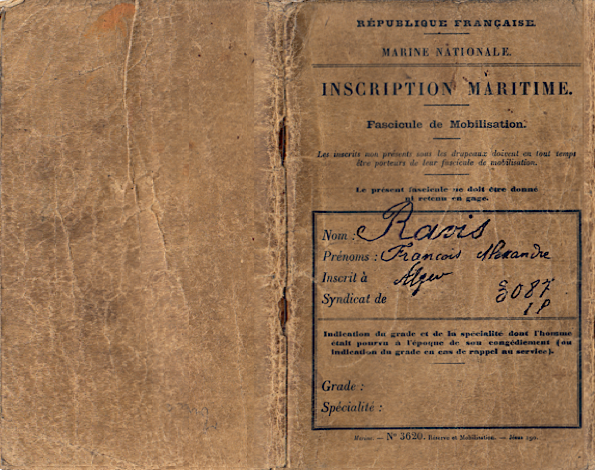 RÉPUBLIQUE FRANÇAISE.
MARINE NATIONALE.
INSCRIPTION MARITIME.
Fascicule de Mobilisation.
Les inscrits non présents sous les drapeaux doivent en tout temps
être porteurs de leur fascicule de mobilisation.
Le présent fascicule ne doit être donné
ni retenu en gage.
Nom : Ravis
Prénoms : François Alexandre
Inscrit à Alger
Syndicat de 3087
IP
Indication du grade et de la spécialité dont l'homme
était pourvu à l'époque de son congédiement (ou
indication du grade en cas de rappel au service).
Grade :
Spécialité :
Marine. — N° 3620. Réserve et Mobilisation. —